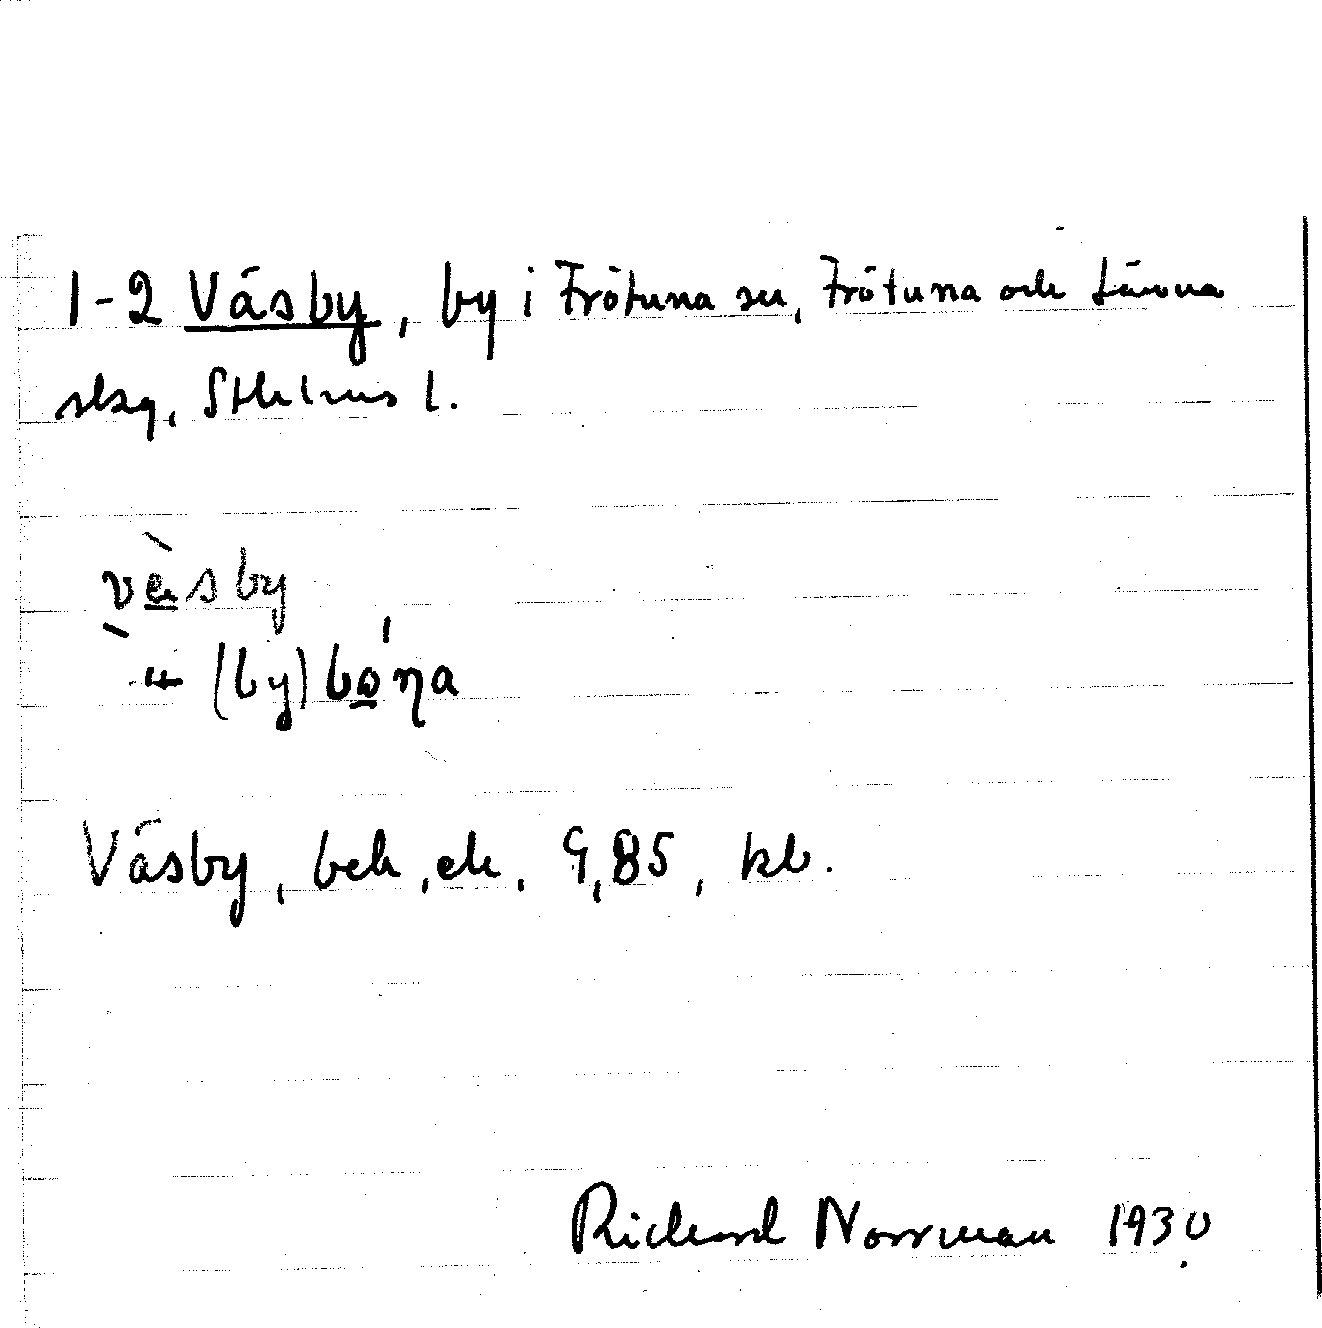 1-2 Väsby, by i Frötuna sn, Frötuna och Länna
skg, Sthlms l.
vèsby
" (by)bo̲ŋa
Väsby, beh, ek. 9,85, kb.
Richard Norrman 1930